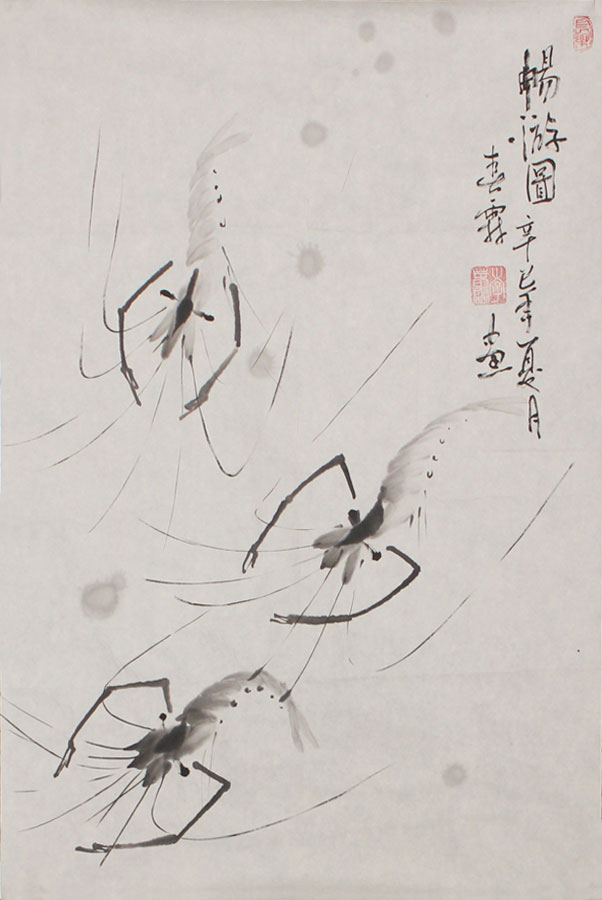 暢游圖
辛巳年夏月
春霖
畫